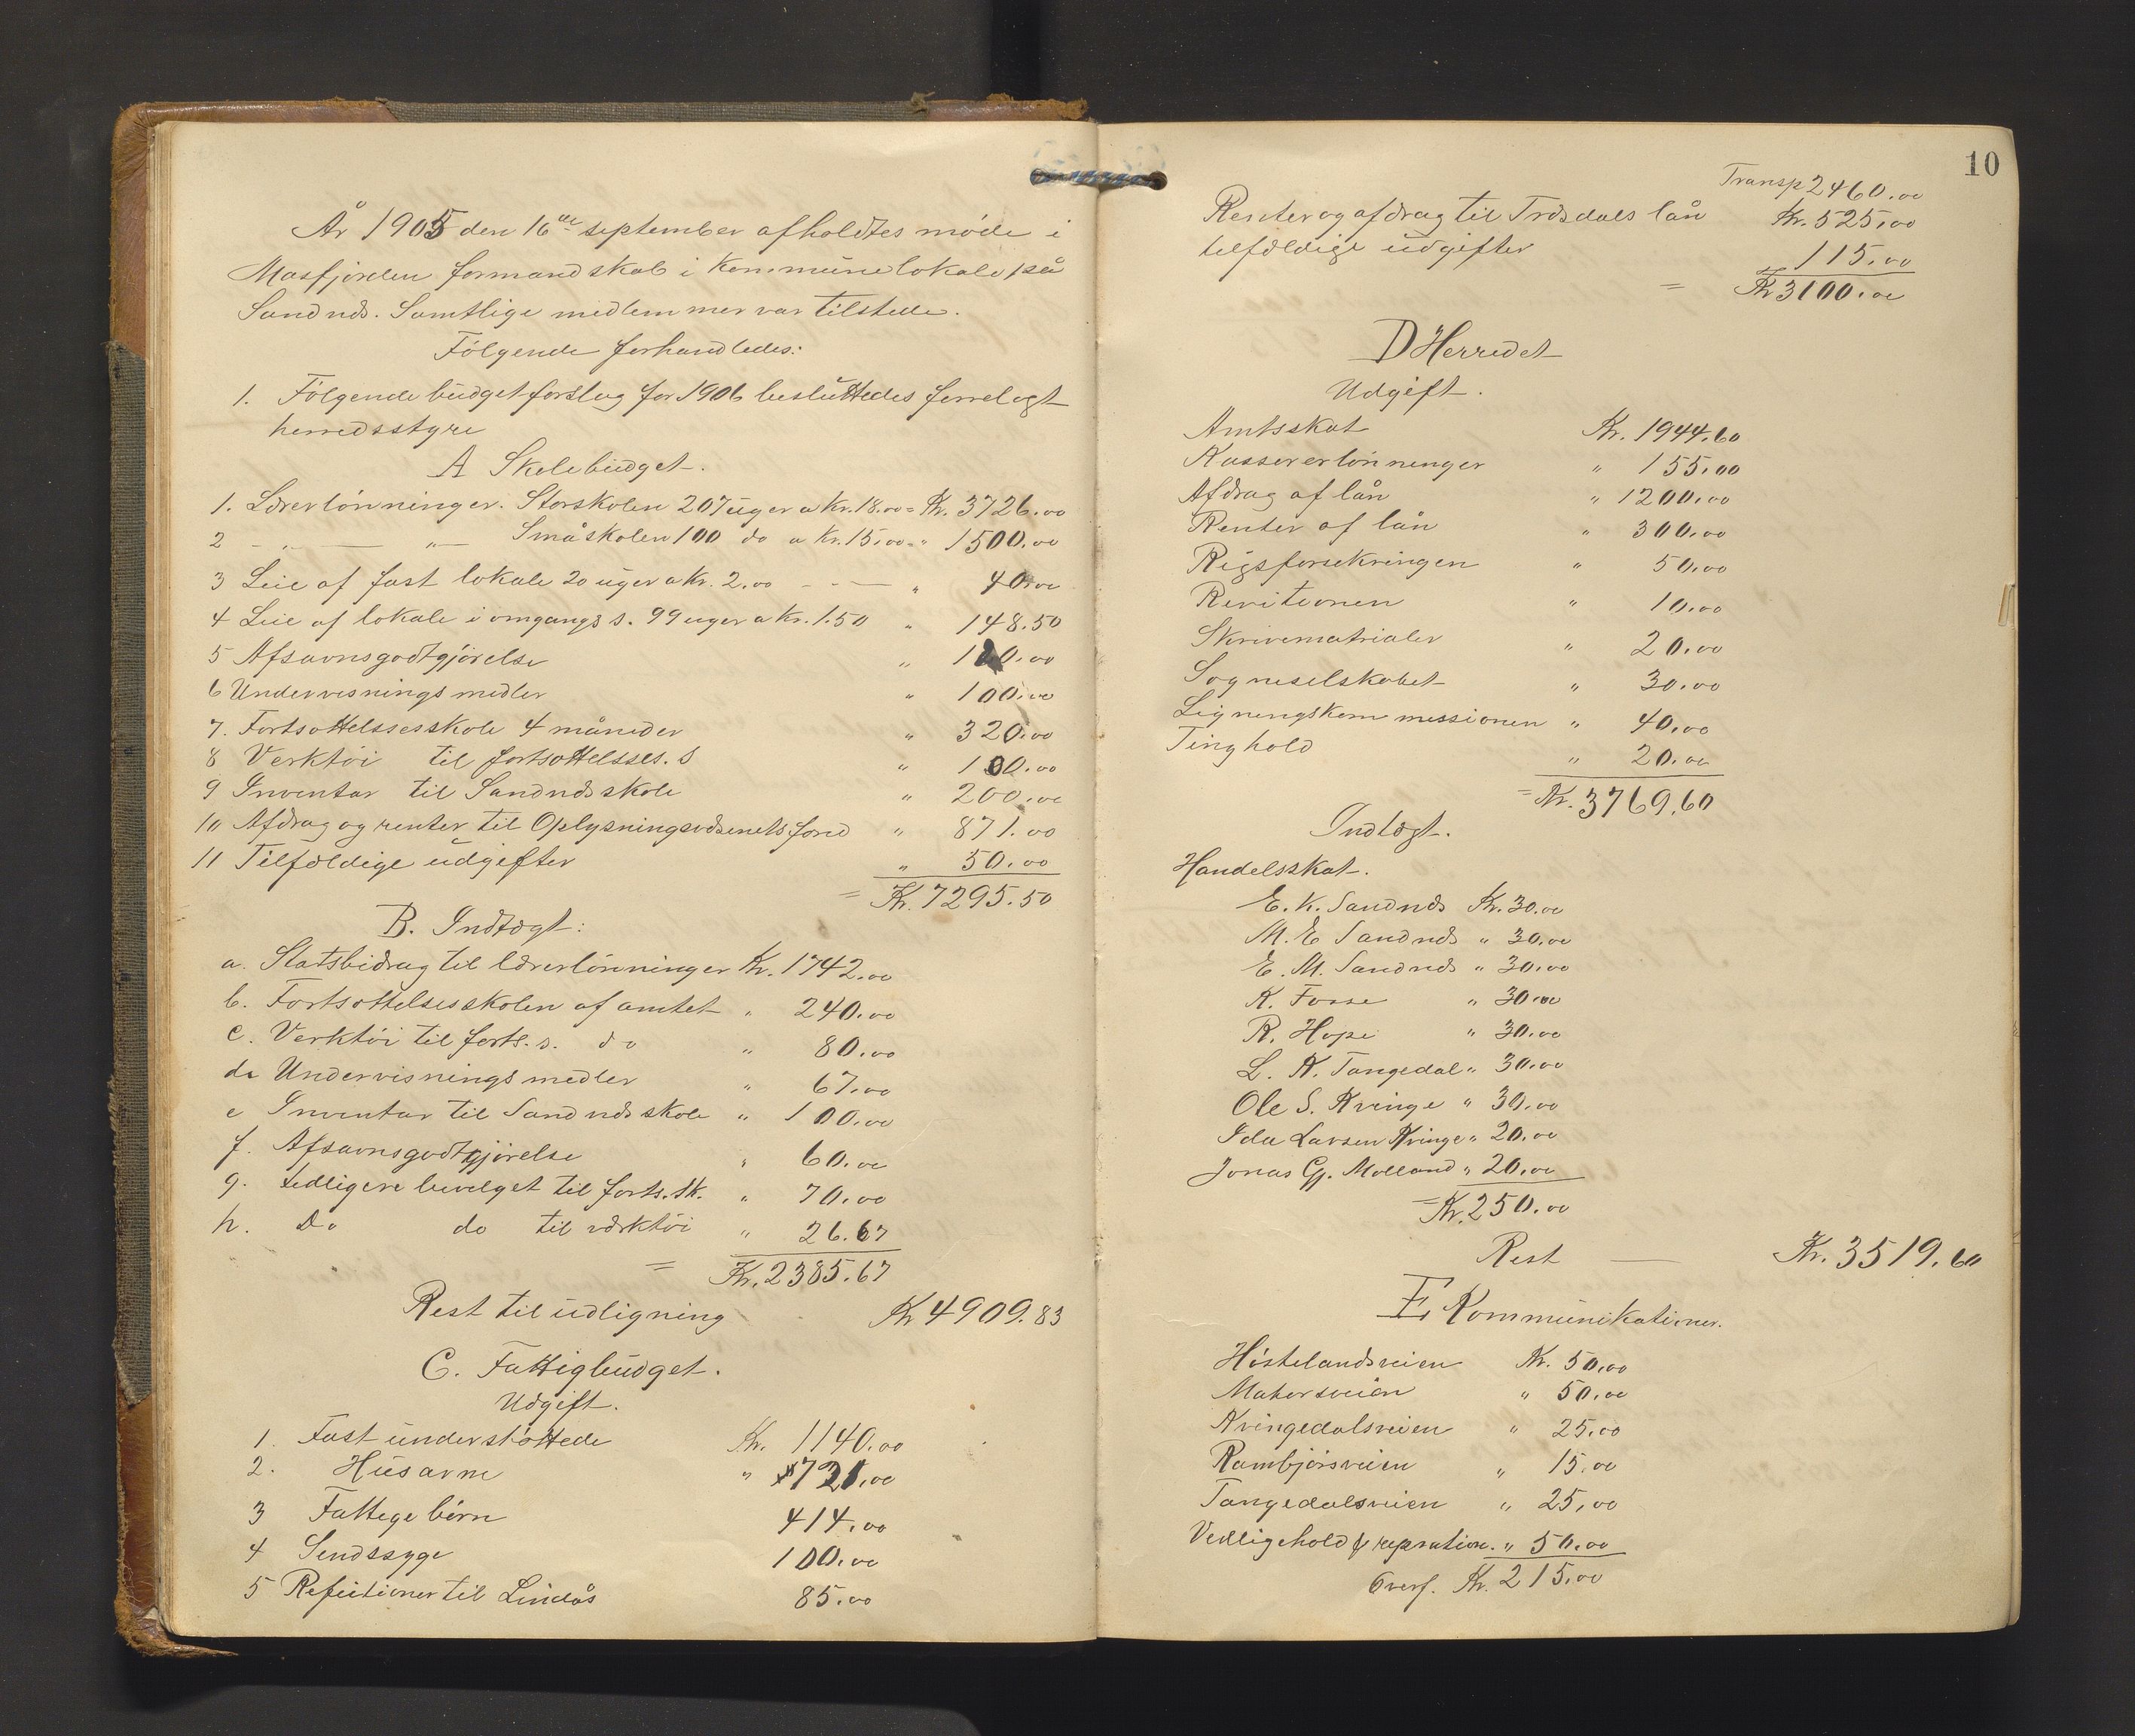 År 1905 den 16de september afholdtes møde i
Masfjorden formandskab i kommunelokale på
Sandnæs. Samtlige medlemmer var tilstede.
Følgende forhandledes:
1. Følgende budgetforslag for 1906 besluttedes forrelagt
herredsstyre
A Skolebudget.
1. Lærerlønninger. Storskolen 207 uger a Kr. 18.00 = Kr. 3726.00
2 - „ — „ — Småskolen 100 do a Kr. 15.00 - „ 1500.00
3 Leie af fast lokale 20 uger a Kr. 2.00 - - — „ 40.00
4 Leie af lokale i omgangs s. 99 uger a Kr. 1.50 „ 148.50
5 Afsavnsgodtgjørelse „ .00
6 Undervisnings midler „ 100.00
7. Fortsættelssesskole 4 måneder „ 320.00
8 Verktøi til fortsættelsses. s „ 100.00
9 Inventar til Sandnæs skole „ 200.00
10 Afdrag og renter til Oplysningsvæsenets fond „ 871.00
11 Tilfældige udgifter „ 50.00
= Kr. 7295.50
B. Indtægt:
a. Statsbidrag til lærerlønninger Kr. 1742.00
b. Fortsættelsesskolen af amtet „ 240.00
c. Verktøi til forts. s. do „ 80.00
d. Undervisnings midler „ 67.00
e Inventar til Sandnæs skole „ 100.00
f. Afsavnsgodtgjørelse „ 60.00
g. Yedligere bevelget til forts. sk. „ 70.00
h. Do do til værktøi „ 26.67
= Kr. 2385.67
Rest til udligning Kr 4909.83
C. Fattigbudget.
Udgift.
1. Fast understøttede Kr. 1140.00
2. Husarme „ 721.00
3 Fattege børn 414.00
4 Sendssyge 100.00
5 Refutioner til Lindås 85.00
10
Transp 2460.00
Renter og afdrag til Trædals lån Kr. 525.00
tilfældige udgifter 115.00
= Kr 3100.00
D Herredet
Udgift.
Amtsskat Kr. 1944.60
Kassererlønninger „ 155.00
Afdrag af lån „ 1200.00
Renter af lån „ 300.00
Rigsforsekringen „ 50.00
Revitionen „ 10.00
Skrivematrialer „ 20.00
Sogneselskabet „ 30.00
Ligningskommissionen „ 40.00
Tinghold „ 20.00
= Kr. 3769.60
Indtægt.
Handelsskat.
E. K. Sandnæs Kr. 30.00
M. E Sandnæs „ 30.00
E. M. Sandnæs „ 30.00
K. Fosse „ 30.00
R. Hope „ 30.00
L. K. Tangedal „ 30.00
Ole S. Kvinge „ 30.00
Ida Larsen Kvinge „ 20.00
Jonas Gj. Molland „ 20.00
= Kr. 250.00
Rest — Kr. 3519.60
E Kommunikationer.
Høstelandsveien Kr. 50.00
Matersveien „ 50.00
Kvingedalsveien „ 25.00
Rambjørsveien „ 15.00
Tangedalsveien „ 25.00
Vedligehold & repration. „ 50.00
Overf. Kr. 215.00